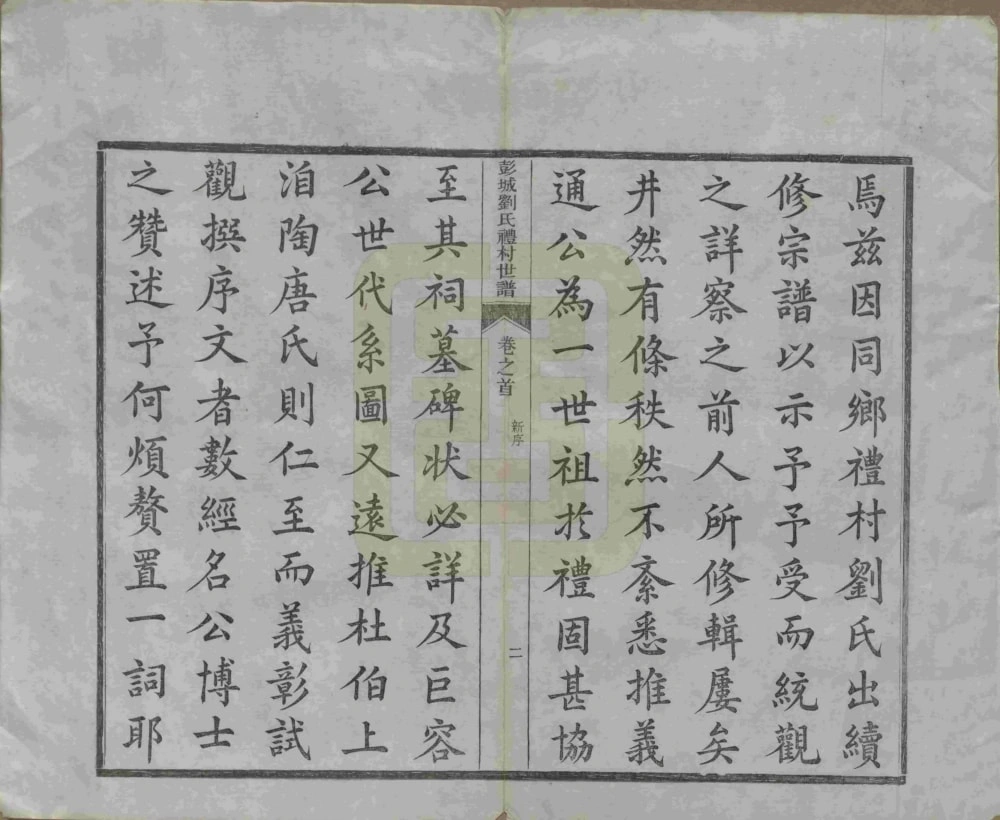 焉茲因同鄉禮村劉氏出續
修宗譜以示予予受而統觀
之詳察之前人所修輯屢矣
井然有條秩然不紊悉推義
通公為一世祖於禮固甚協
彭城劉氏禮村世譜
卷之首
新序
二
至其祠墓碑狀必詳及巨容
公世代系圖又遠推杜伯上
洎陶唐氏則仁至而義彰試
觀撰序文者數經名公博士
之贊述予何煩贅置一詞耶